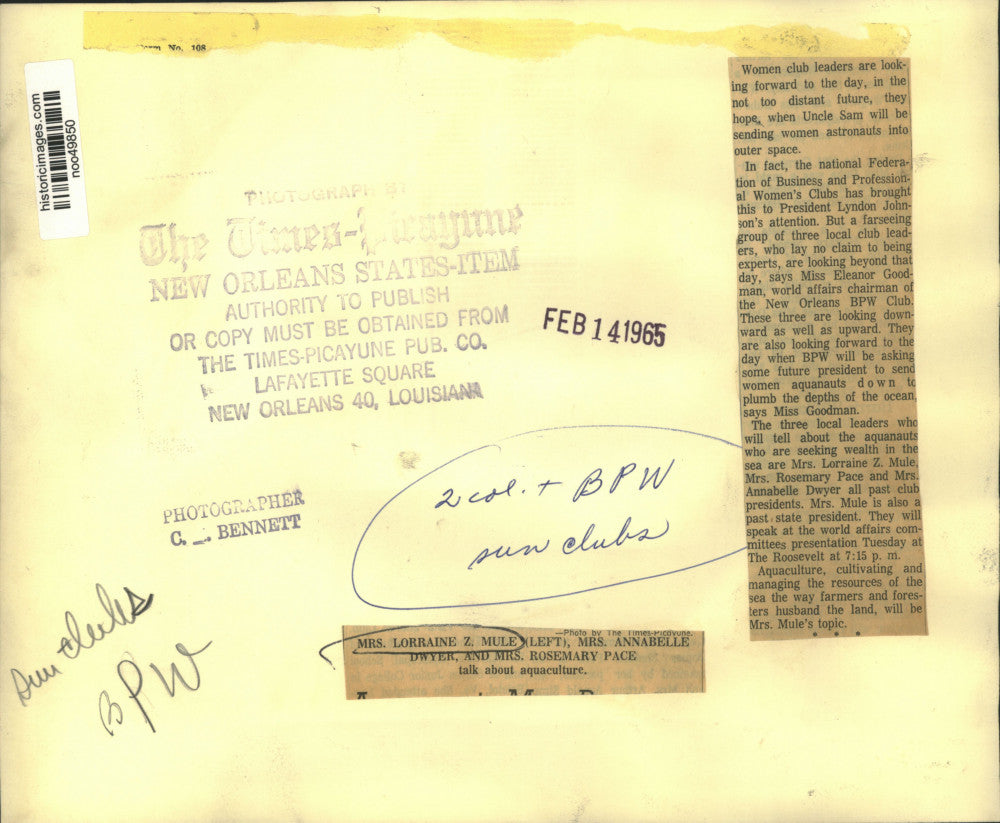 Form No. 108
historicimages.com
noo49850
PHOTOGRAPH BY
The Times-Picayune
NEW ORLEANS STATES-ITEM
AUTHORITY TO PUBLISH
OR COPY MUST BE OBTAINED FROM
THE TIMES-PICAYUNE PUB. CO.
LAFAYETTE SQUARE
NEW ORLEANS 40, LOUISIANA
FEB 14 1965
PHOTOGRAPHER
C. BENNETT
2 col. + BPW
sun clubs
Sun clubs
BPW
—Photo by The Times-Picayune.
MRS. LORRAINE Z. MULE (LEFT), MRS. ANNABELLE
DWYER, AND MRS. ROSEMARY PACE
talk about aquaculture.
Women club leaders are look-
ing forward to the day, in the
not too distant future, they
hope, when Uncle Sam will be
sending women astronauts into
outer space.
In fact, the national Federa-
tion of Business and Profession-
al Women's Clubs has brought
this to President Lyndon John-
son's attention. But a farseeing
group of three local club lead-
ers, who lay no claim to being
experts, are looking beyond that
day, says Miss Eleanor Good-
man, world affairs chairman of
the New Orleans BPW Club.
These three are looking down-
ward as well as upward. They
are also looking forward to the
day when BPW will be asking
some future president to send
women aquanauts down to
plumb the depths of the ocean,
says Miss Goodman.
The three local leaders who
will tell about the aquanauts
who are seeking wealth in the
sea are Mrs. Lorraine Z. Mule,
Mrs. Rosemary Pace and Mrs.
Annabelle Dwyer all past club
presidents. Mrs. Mule is also a
past state president. They will
speak at the world affairs com-
mittees presentation Tuesday at
The Roosevelt at 7:15 p. m.
Aquaculture, cultivating and
managing the resources of the
sea the way farmers and fores-
ters husband the land, will be
Mrs. Mule's topic.